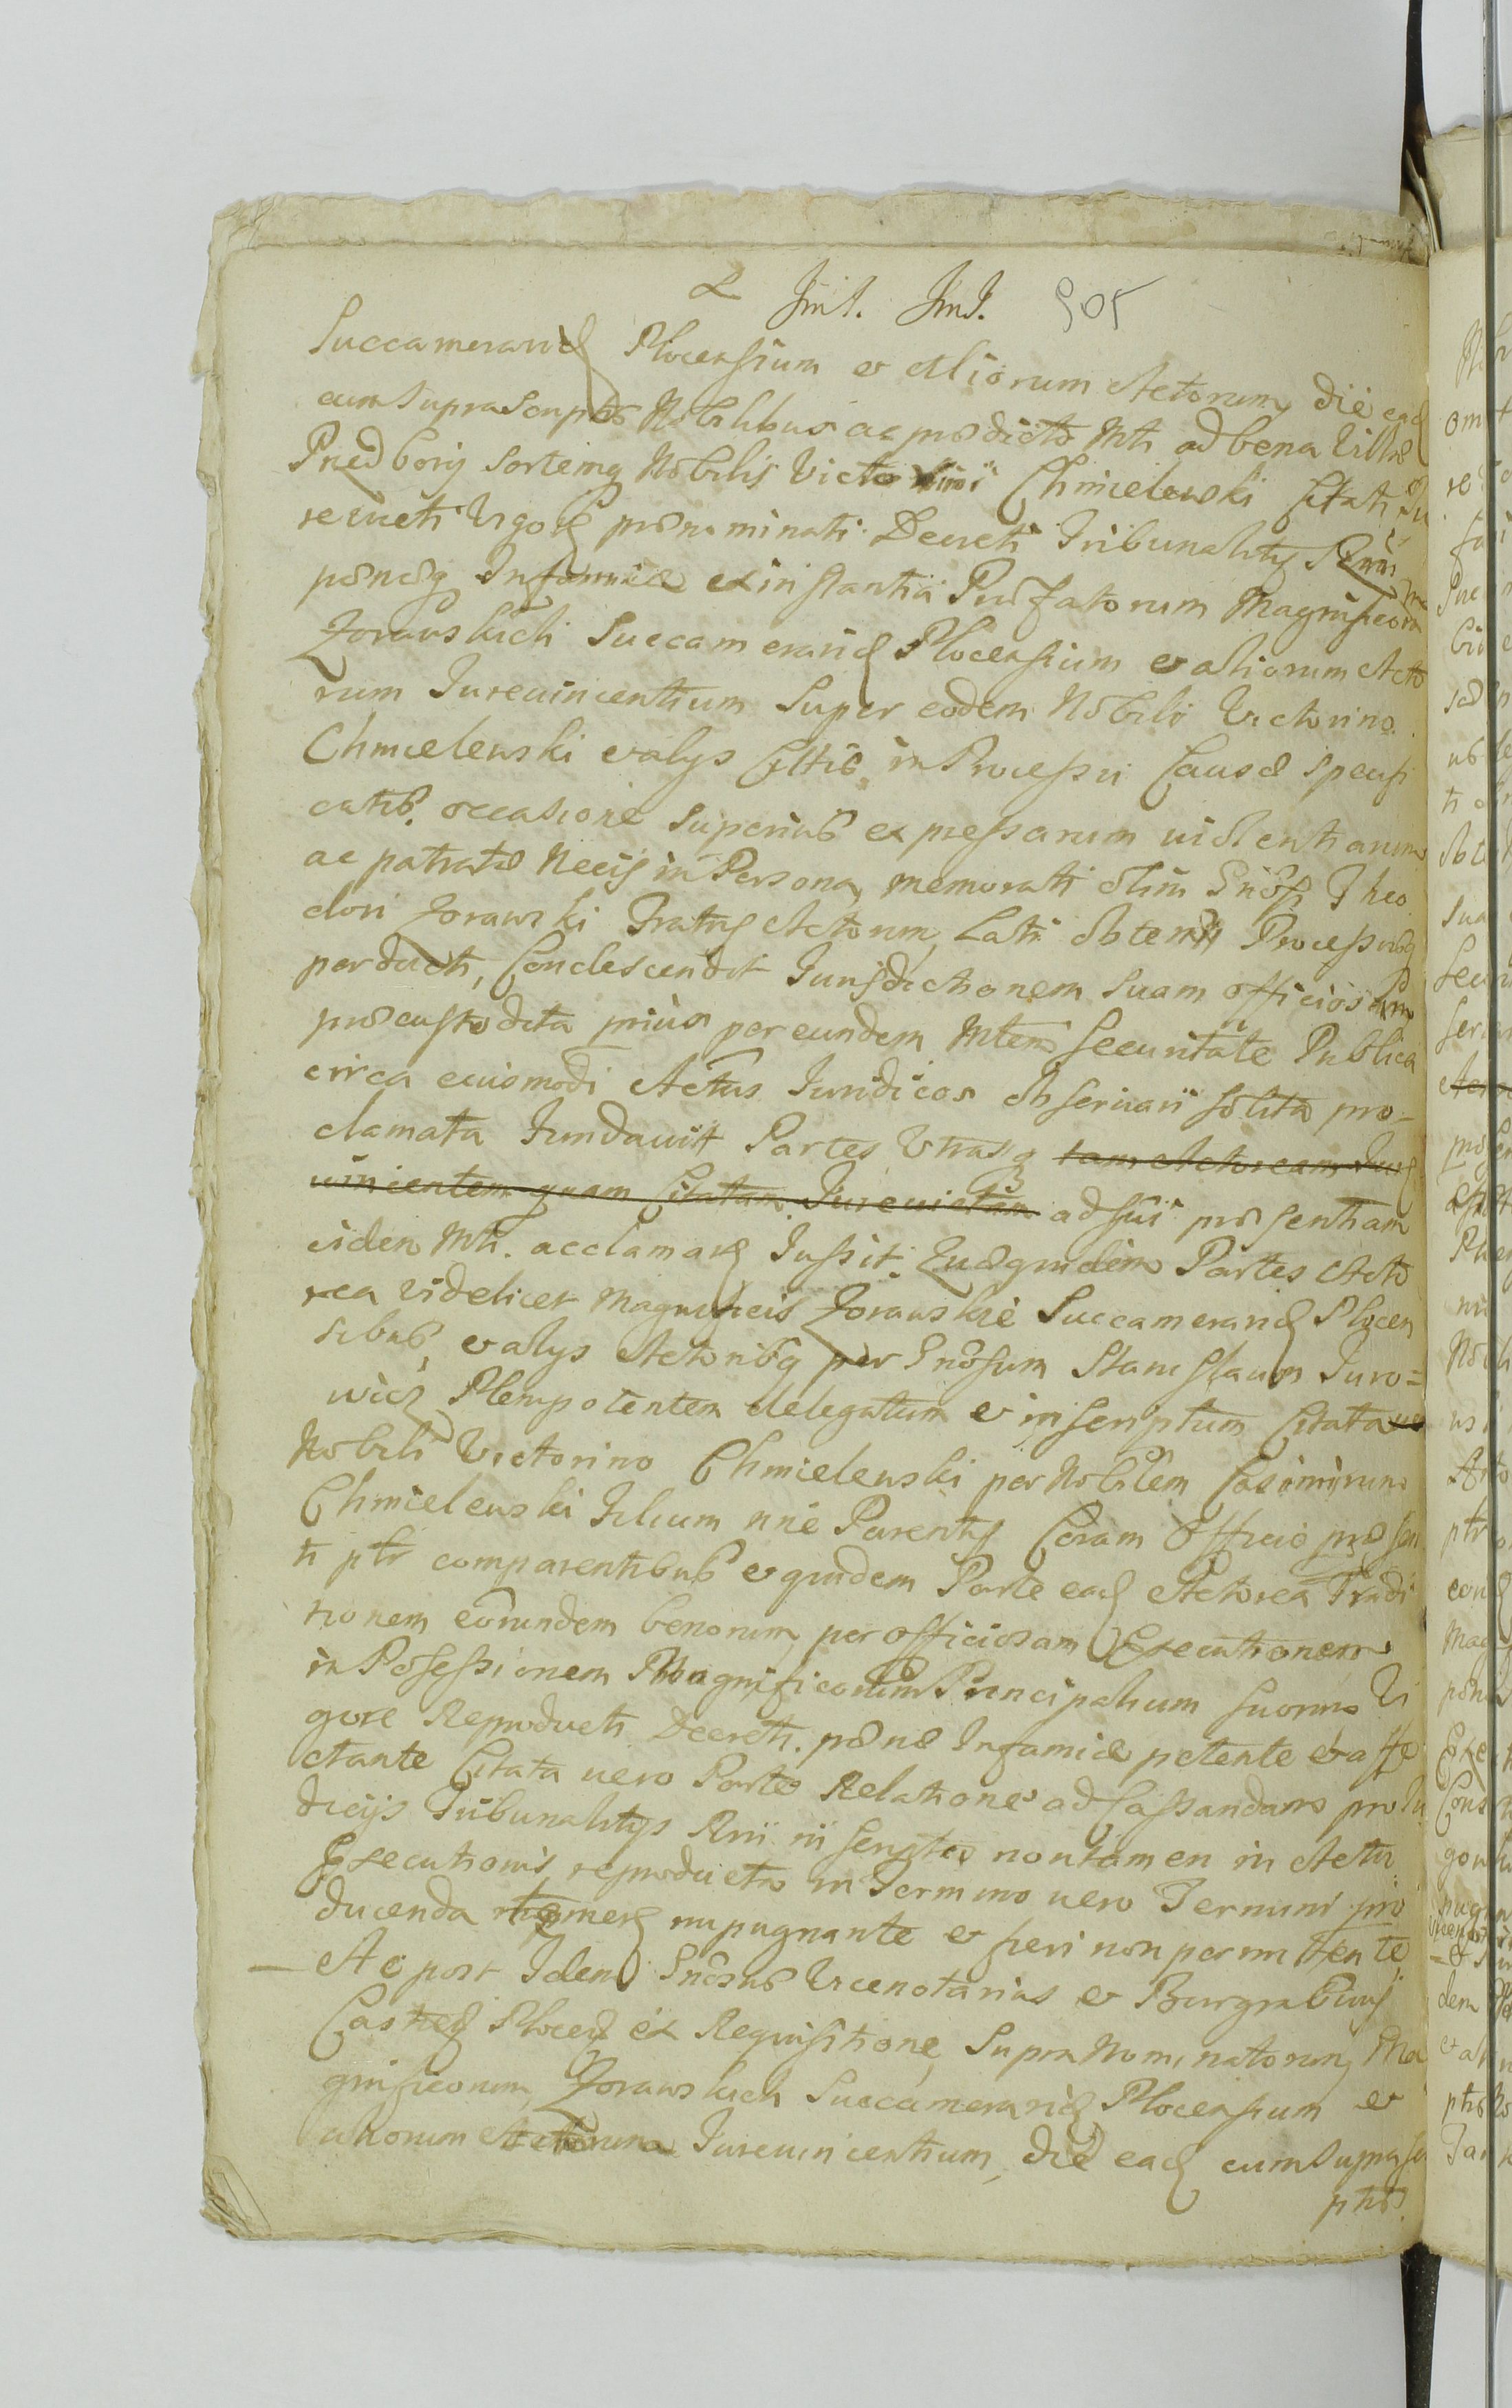 505
Succamerarid Plocensium et Aliorum Actorum, die ead
cum suprascriptis Nobilibus ac prædicto Mtli ad bona Villæ
Przedborÿ sortemq Nobilis Victorini Chmielewski Citati Ju
reuicti Vigore prænominati Decreti Tribunalitÿ
pænæq Infamiæ ex instantia Præfatorum Magnificorum
Zorawskich Succamerarid Plocensium et aliorum Acto
rum Jureuincentium Super eodem Nobili Victorino
Chmielewski et alys Cittis in Processu Causæ specifi
catis occasione superius expressarum uiolentiarum
ac patratæ Necis in Persona memorati olim Gnosi Theo
dori Zorawski Fratris Actorum, Lati obtenti Processusq
perducti, Condescendit Jurisdictionem Suam officiosam
præcustodita prius per eundem Mtem Securitate Publica
circa eiusmodi Actus Juridicos obseruari solita pro-
clamata Fundauit Partes Utrasq tam Actoream Jure
uincentem quam Citatam Jureuictam ad sui præsentiam
eidem Mtli. acclamare Jussit. Quæquidem Partes Acto
rea videlicet Magnificis Zorawskie Succamerarid Plocen
sibus, et alys Actoribq per Gnosum Stanislaum Juro=
wicz Plenipotentem delegatum et inscriptum Citata
Nobili Victorino Chmielewski per Nobilem Casimirum
Chmielewski Filium nne Parentis Coram Officio præsen
ti ptr comparentibus et quidem Parte ead Actorea Tradi
tionem eorundem bonorum, per officiosam Executionem
in Possessionem Magnificorum Principalium suorum Vi
gore Reproducti Decreti. pænæ Infamiæ petente et affe
ctante Citata uero Parte Relatione ad Cassandum pro Ju
dicijs Tribunalitijs Rni in non tamen in Actu
Executionis reproducta in Termino uero Termini pro
ducenda repugnante et fieri non permittente
— Ac post Idem Gnosus Vicenotarius et Burgrabius
Castren Plocen ex Requisitione, Supra Nominatorum, Ma
gnificorum, Zorawskich Succamerarid Plocensium et
aliorum Actorum Jureuincentium, die ead cum supra scri
ptis